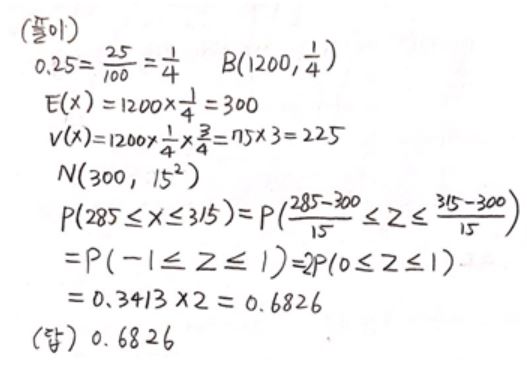 (풀이)
0.25 = 25/100 = 1/4    B(1200, 1/4)
E(x) = 1200 × 1/4 = 300
V(x) = 1200 × 1/4 × 3/4 = 75 × 3 = 225
N(300, 15²)
P(285 ≤ x ≤ 315) = P((285-300)/15 ≤ z ≤ (315-300)/15)
= P(-1 ≤ z ≤ 1) = 2P(0 ≤ z ≤ 1)
= 0.3413 × 2 = 0.6826
(답) 0.6826